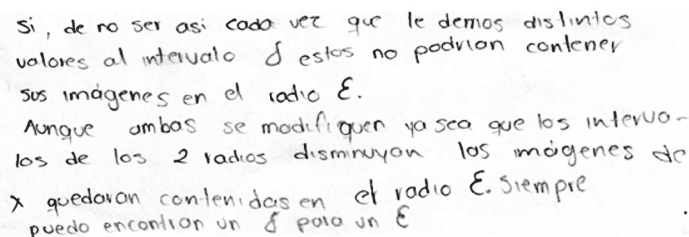 Si, de no ser asi cada vez que le demos distintos
valores al intervalo δ estos no podrian contener
sus imágenes en el radio ε.
Aunque ambas se modifiquen ya sea que los interva-
los de los 2 radios disminuyan los imágenes de
x quedaran contenidas en el radio ε. Siempre
puedo encontrar un δ para un ε